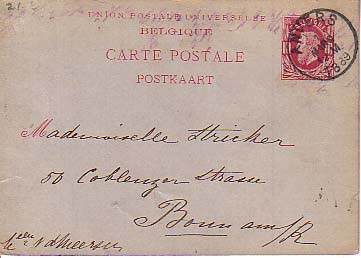 21.
UNION POSTALE UNIVERSELLE
BELGIQUE
CARTE POSTALE
POSTKAART
ANVERS
Mademoiselle Stricker
50 Coblenzer Strasse
Bonn am/R